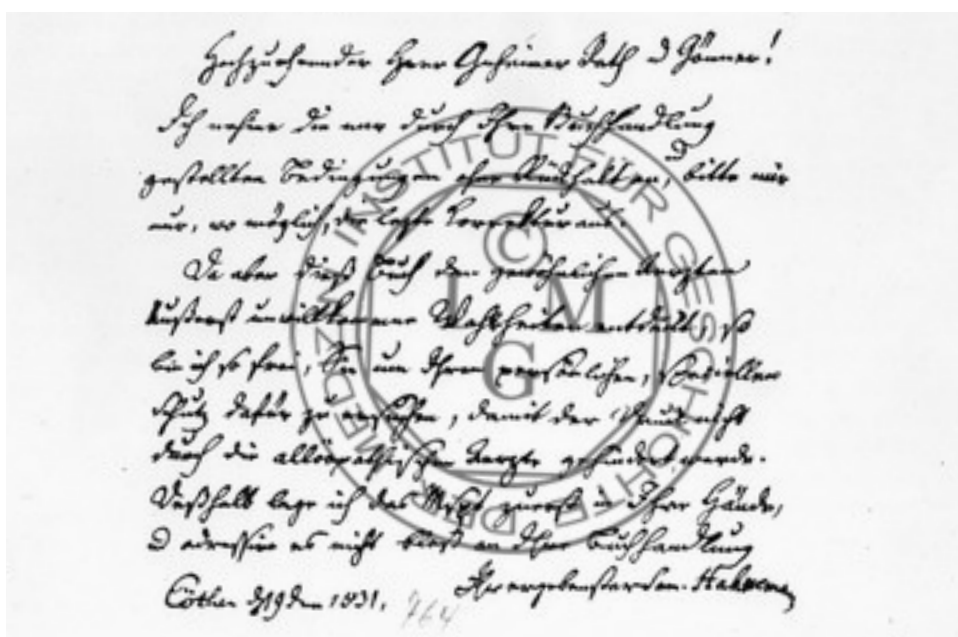 Hochzuehrender Herr Geheimer Rath u Gönner!
Ich nehme die mir durch Ihre Buchhandlung
gestellten Bedingungen ohne Rückhalt an, u bitte mir
nur, wo möglich, die letzte Correktur aus.
Da aber dieß Buch den gewöhnlichen Aerzten
äußerst unwillkommne Wahrheiten entdeckt, so
bin ich so frei, Sie um Ihren persönlichen, speciellen
Schutz dafür zu ersuchen, damit der Druck nicht
durch die allöopathischen Aerzte gehindert werde.
Deßhalb lege ich das Mspt zuerst in Ihre Hände,
u adressire es nicht bloß an Ihre Buchhandlung
Ihr ergebenster Sam. Hahnemann
Cöthen d 19 1831.
764
INSTITUT FÜR GESCHICHTE DER MEDIZIN
©
I M
G